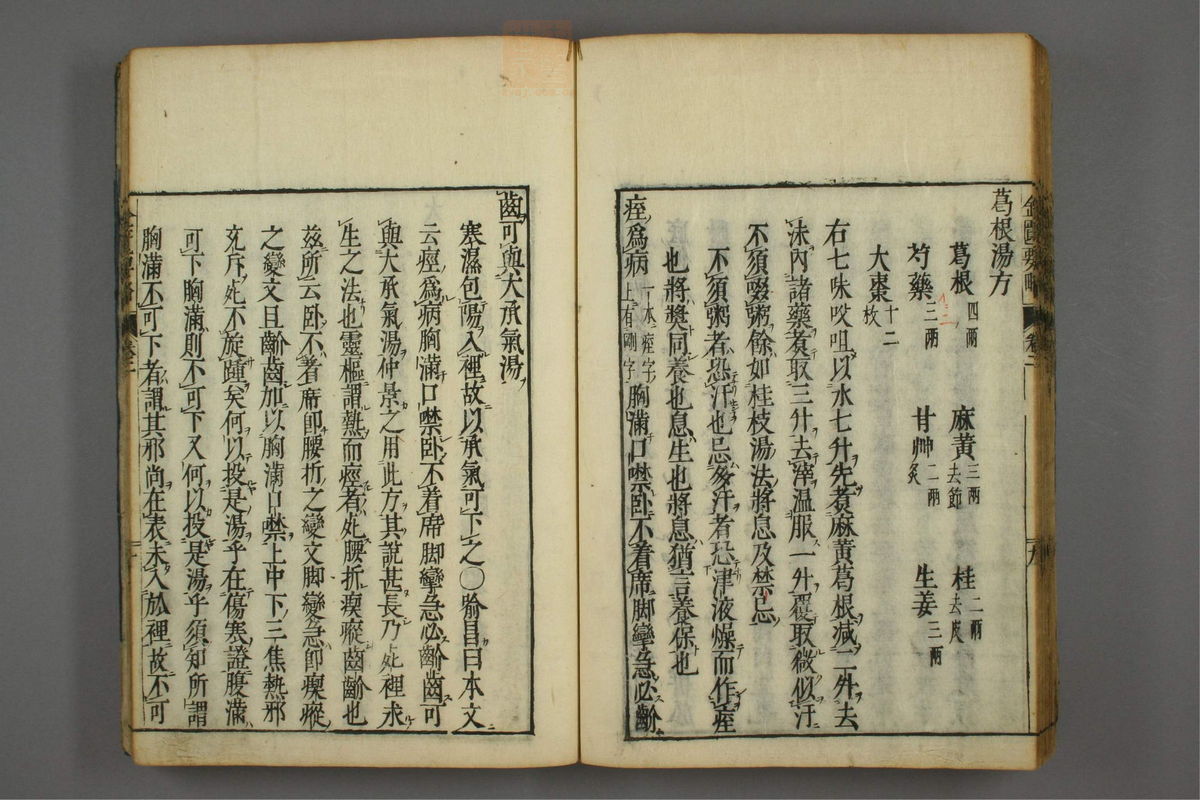 葛根湯方
葛根四兩 麻黃三兩去節 桂二兩去皮
芍藥二兩 甘艸二兩炙 生姜三兩
大棗十二枚
右七味㕮咀以水七升先煑麻黃葛根減二升去
沫內諸藥煑取三升去滓温服一升覆取微似汗
不須啜粥餘如桂枝湯法將息及禁忌
不須粥者恐汗也忌多汗者恐津液燥而作痙
也將奬同養也息生也將息猶言養保也
痙爲病一本痙字上有剛字胸滿口噤卧不着席脚攣急必齘
齒可與大承氣湯
寒濕包陽入裡故以承氣可下之○喻昌曰本文
云痙爲病胸滿口噤卧不着席脚攣急必齘齒可
與大承氣湯仲景之用此方其說甚長乃死裡求
生之法也靈樞謂熱而痙者死腰折瘈瘲齒齘也
茲所云卧不着席卽腰折之變文脚攣急卽瘈瘲
之變文且齘齒加以胸滿口噤上中下三焦熱邪
充斥死不旋踵矣何以投是湯乎在傷寒證腹滿
可下胸滿則不可下又何以投是湯乎須知所謂
胸滿不可下者謂其邪尚在表未入於裡故不可